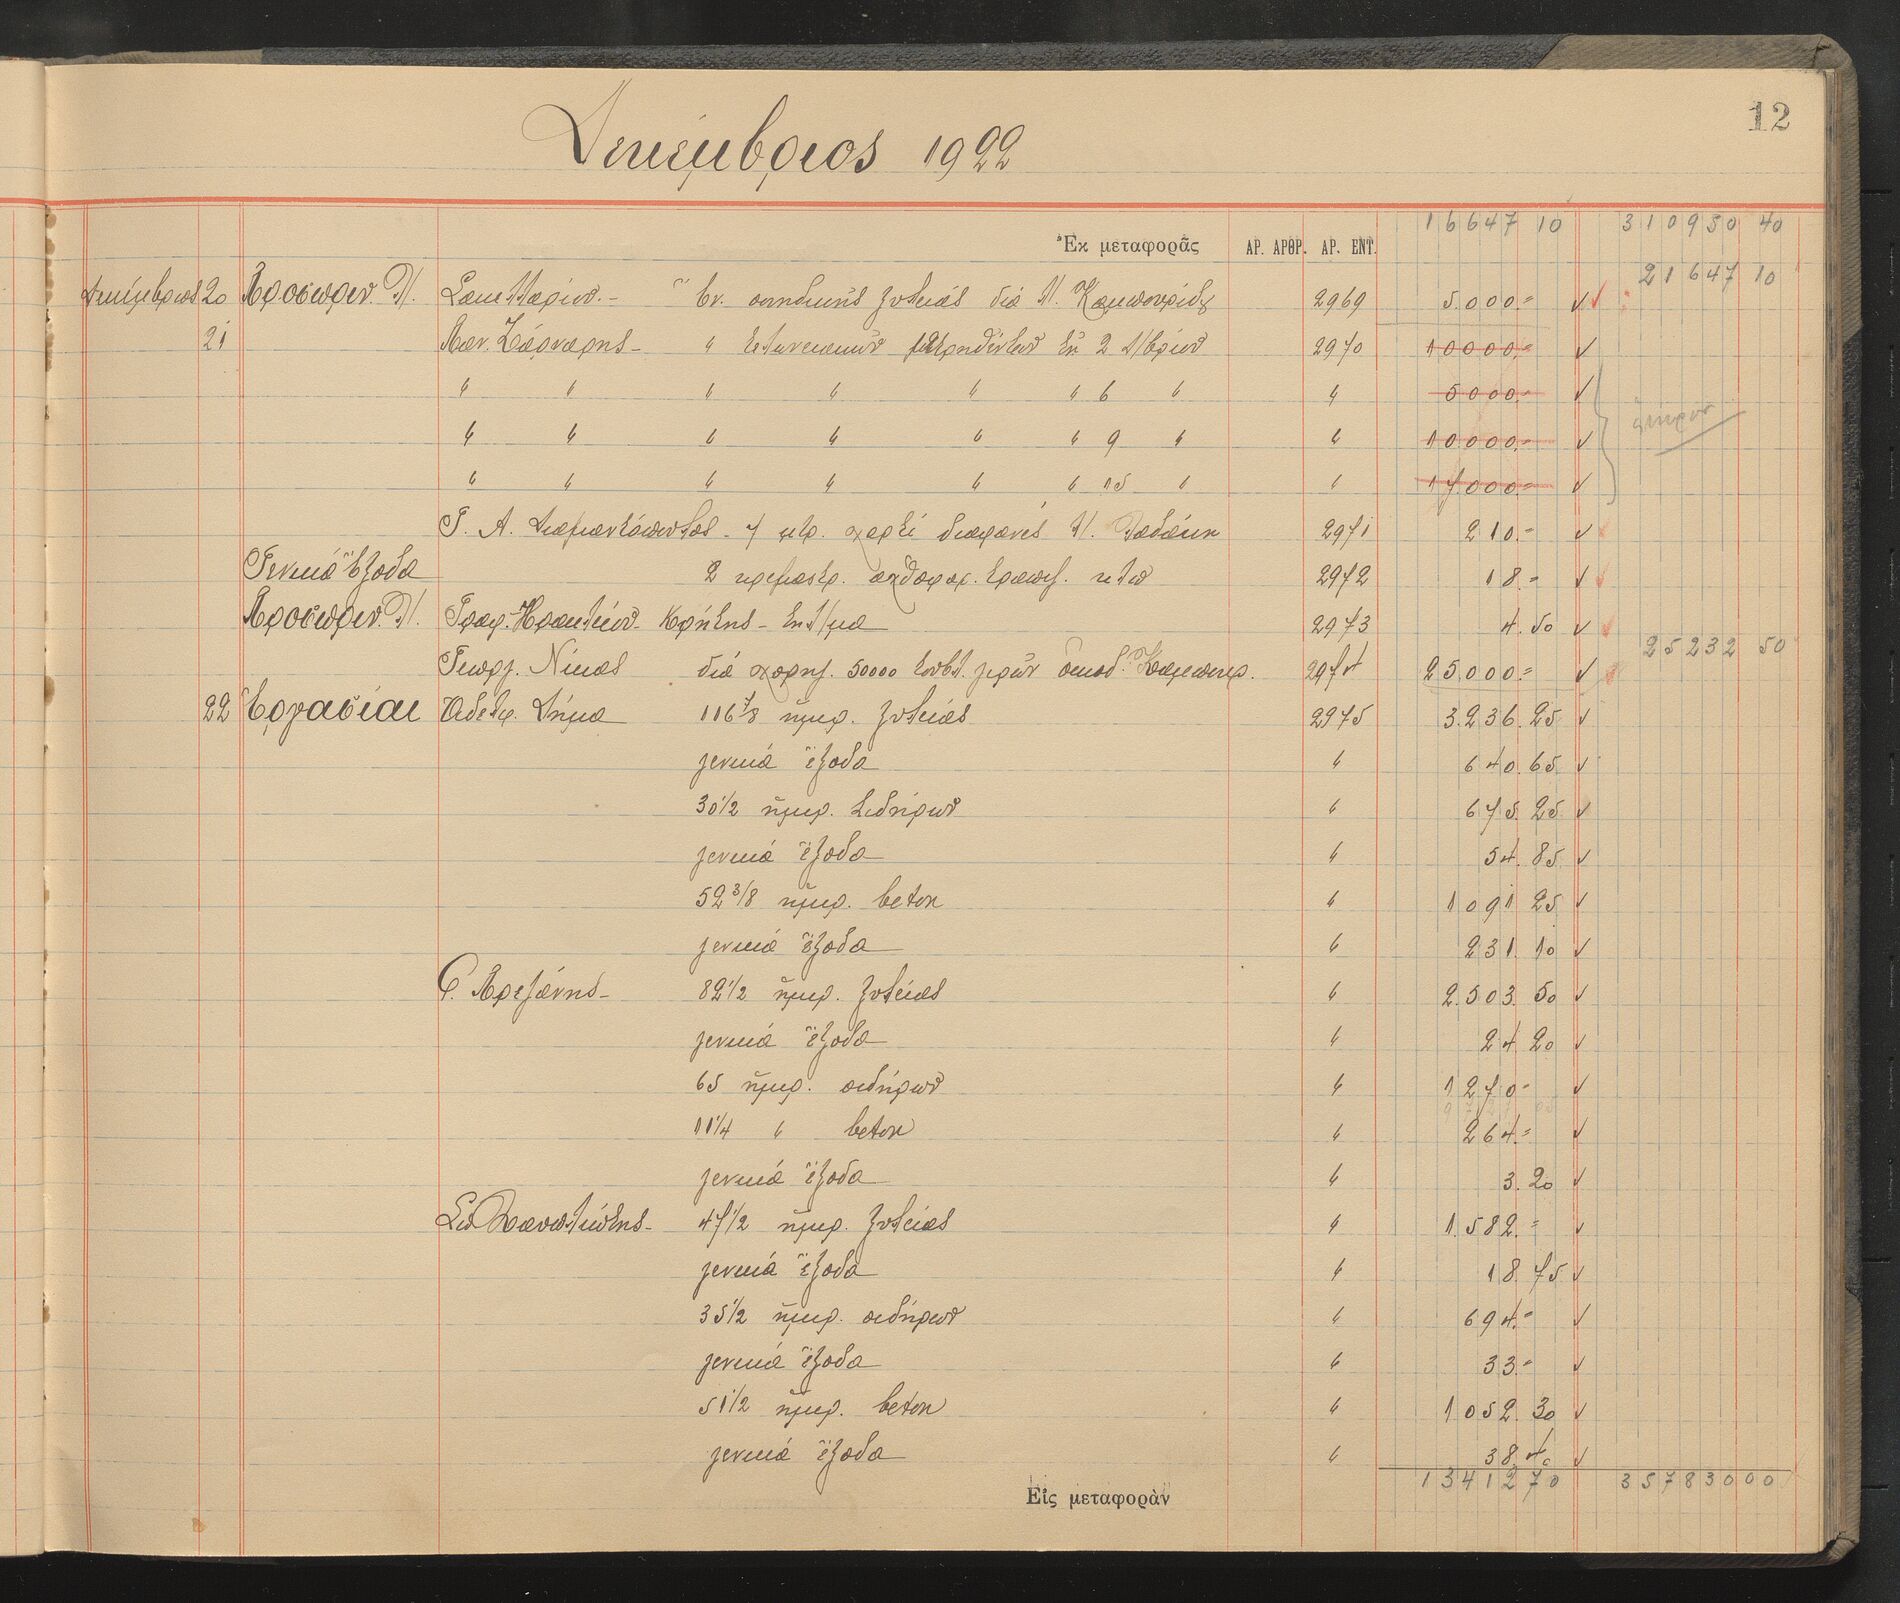 12
Δεκέμβριος 1922
Ἐκ μεταφορᾶς ΑΡ. ΑΡΘΡ. ΑΡ. ΕΝΤ. 16647 10 310950 40
21647 10
Δεκέμβριος 20 Προσωριν. Λ. Σακελλαρίου - διά Λ. Καμπουρίδη 2969 5.000.=
21 Παν. Ζάρναρης - " 2 Δ/βρίου 2970 10000.=
" " " " " " 6 " " 5000.=
" " " " " " 9 " " 10.000.=
" " " " " " 15 " " 17.000.=
Γ. Α. Διαμαντόπουλος - 7 μτρ. χαρτί διαφανές Λ. 2971 210.=
Γενικά Ἔξοδα 2 κρεμαστρ. 2972 18.=
Προσωριν. Λ. Γραφ. Κρήτης - 2973 4.50
25232 50
Γεωργ. Νίκας διά χορηγ. 50000 2974 25.000.=
22 Ἐργασίαι Ἀδελφ. Δήμα 116 7/8 ἡμερ. ξυλείας 2975 3.236.25
γενικά ἔξοδα " 640.65
30 1/2 ἡμερ. σιδήρων " 675.25
γενικά ἔξοδα " 54.85
52 3/8 ἡμερ. beton " 1091 25
γενικά ἔξοδα " 231.10
82 1/2 ἡμερ. ξυλείας " 2.503.50
γενικά ἔξοδα " 24 20
65 ἡμερ. σιδήρων " 1270=
11 1/4 " beton " 264.=
γενικά ἔξοδα " 3.20
47 1/2 ἡμερ. ξυλείας " 1.582.=
γενικά ἔξοδα " 18.75
35 1/2 ἡμερ. σιδήρων " 694.=
γενικά ἔξοδα " 33.=
51 1/2 ἡμερ. beton " 1052.30
γενικά ἔξοδα " 38.40
Εἰς μεταφορὰν 13412 70 357830 00